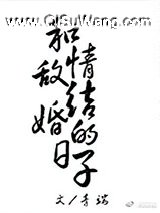 www.QiSuWang.com
和情敌结婚的日子
文/青端